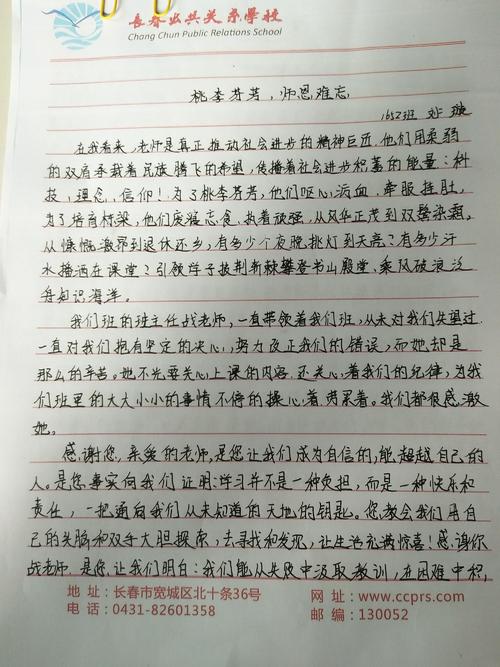 长春公共关系学校
Chang Chun Public Relations School
桃李芬芳，师恩难忘
1652班 孙 璇
在我看来，老师是真正推动社会进步的精神巨匠。他们用柔弱
的双肩承载着民族腾飞的希望，传播着社会进步积蓄的能量：科
技，理念，信仰！为了桃李芬芳，他们呕心沥血，牵服挂肚，
为了培育栋梁，他们废寝忘食，执着顽强，从风华正茂到双鬓染霜。
从慷慨激昂到退休还乡，有多少个夜晚挑灯到天亮？有多少汗
水播洒在课堂？引领学子披荆斩棘攀登书山殿堂、乘风破浪泛
舟知识海洋。
我们班的班主任战老师，一直带领着我们班，从未对我们失望过
一直对我们抱有坚定的决心，努力改正我们的错误，而她却是
那么的辛苦。她不光要关心上课的内容，还关心着我们的纪律，为我
们班里的大大小小的事情不停的操心着，劳累着。我们都很感激
她。
感谢您，亲爱的老师，是您让我们成为自信的，能超越自己的
人。是您事实向我们证明：学习并不是一种负担，而是一种快乐和
责任，一把通向我们从未知道的天地的钥匙。您教会我们用自
己的头脑和双手大胆探索，去寻找和发现，让生活充满惊喜！感谢你
战老师，是您让我们明白：我们能从失败中汲取教训，在困难中积，
地 址：长春市宽城区北十条36号
网 址：www.ccprs.com
电 话：0431-82601358
邮 编：130052